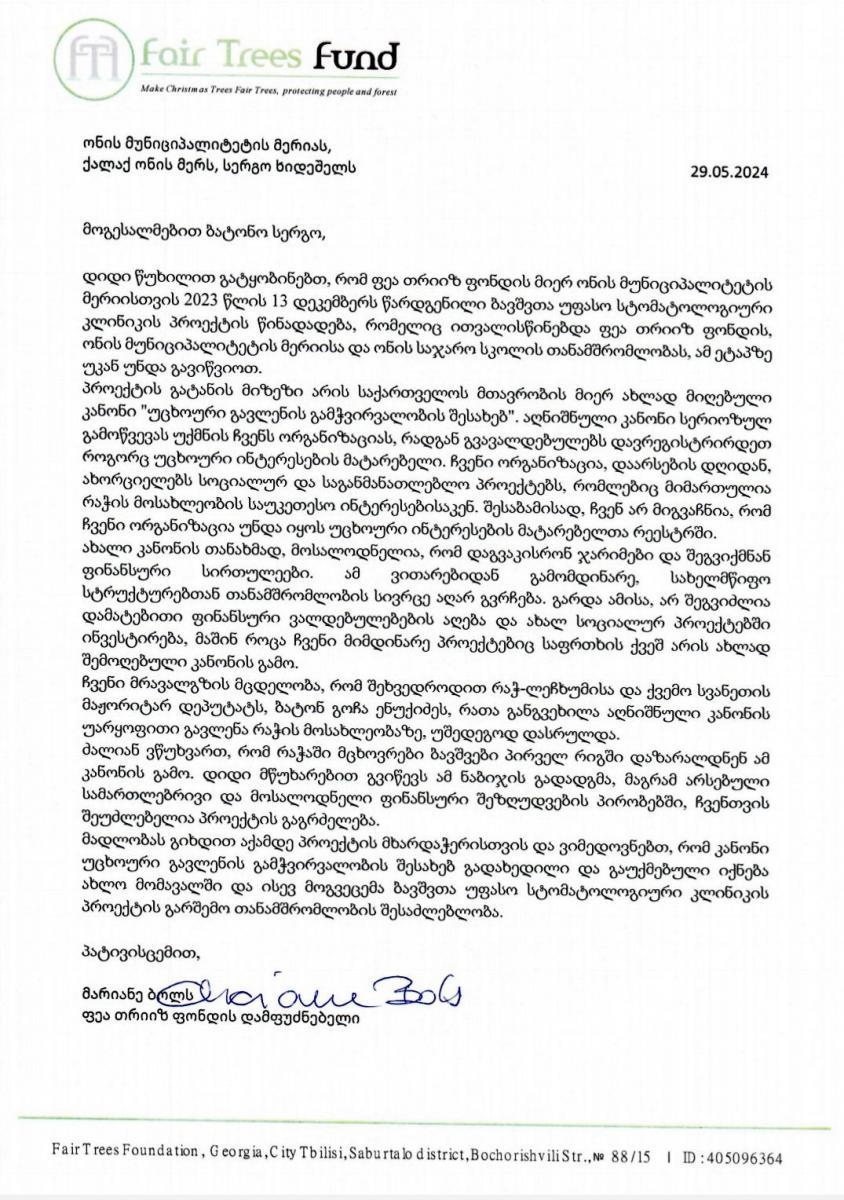 Fair Trees Fund
Make Christmas Trees Fair Trees, protecting people and forest
ონის მუნიციპალიტეტის მერიას,
ქალაქ ონის მერს, სერგო ხიდეშელს
29.05.2024
მოგესალმებით ბატონო სერგო,
დიდი წუხილით გატყობინებთ, რომ ფეა თრიიზ ფონდის მიერ ონის მუნიციპალიტეტის
მერიისთვის 2023 წლის 13 დეკემბერს წარდგენილი ბავშვთა უფასო სტომატოლოგიური
კლინიკის პროექტის წინადადება, რომელიც ითვალისწინებდა ფეა თრიიზ ფონდის,
ონის მუნიციპალიტეტის მერიისა და ონის საჯარო სკოლის თანამშრომლობას, ამ ეტაპზე
უკან უნდა გავიწვიოთ.
პროექტის გატანის მიზეზი არის საქართველოს მთავრობის მიერ ახლად მიღებული
კანონი "უცხოური გავლენის გამჭვირვალობის შესახებ". აღნიშნული კანონი სერიოზულ
გამოწვევას უქმნის ჩვენს ორგანიზაციას, რადგან გვავალდებულებს დავრეგისტრირდეთ
როგორც უცხოური ინტერესების მატარებელი. ჩვენი ორგანიზაცია, დაარსების დღიდან,
ახორციელებს სოციალურ და საგანმანათლებლო პროექტებს, რომლებიც მიმართულია
რაჭის მოსახლეობის საუკეთესო ინტერესებისაკენ. შესაბამისად, ჩვენ არ მიგვაჩნია, რომ
ჩვენი ორგანიზაცია უნდა იყოს უცხოური ინტერესების მატარებელთა რეესტრში.
ახალი კანონის თანახმად, მოსალოდნელია, რომ დაგვაკისრონ ჯარიმები და შეგვიქმნან
ფინანსური სირთულეები. ამ ვითარებიდან გამომდინარე, სახელმწიფო
სტრუქტურებთან თანამშრომლობის სივრცე აღარ გვრჩება. გარდა ამისა, არ შეგვიძლია
დამატებითი ფინანსური ვალდებულებების აღება და ახალ სოციალურ პროექტებში
ინვესტირება, მაშინ როცა ჩვენი მიმდინარე პროექტებიც საფრთხის ქვეშ არის ახლად
შემოღებული კანონის გამო.
ჩვენი მრავალგზის მცდელობა, რომ შეხვედროდით რაჭ-ლეჩხუმისა და ქვემო სვანეთის
მაჟორიტარ დეპუტატს, ბატონ გოჩა ენუქიძეს, რათა განგვეხილა აღნიშნული კანონის
უარყოფითი გავლენა რაჭის მოსახლეობაზე, უშედეგოდ დასრულდა.
ძალიან ვწუხვართ, რომ რაჭაში მცხოვრები ბავშვები პირველ რიგში დაზარალდნენ ამ
კანონის გამო. დიდი მწუხარებით გვიწევს ამ ნაბიჯის გადადგმა, მაგრამ არსებული
სამართლებრივი და მოსალოდნელი ფინანსური შეზღუდვების პირობებში, ჩვენთვის
შეუძლებელია პროექტის გაგრძელება.
მადლობას გიხდით აქამდე პროექტის მხარდაჭერისთვის და ვიმედოვნებთ, რომ კანონი
უცხოური გავლენის გამჭვირვალობის შესახებ გადახედილი და გაუქმებული იქნება
ახლო მომავალში და ისევ მოგვეცემა ბავშვთა უფასო სტომატოლოგიური კლინიკის
პროექტის გარშემო თანამშრომლობის შესაძლებლობა.
პატივისცემით,
მარიანე ბოლს Mariane Bols
ფეა თრიიზ ფონდის დამფუძნებელი
Fair Trees Foundation, Georgia, City Tbilisi, Saburtalo district, Bochorishvili Str., № 88/15 | ID : 405096364